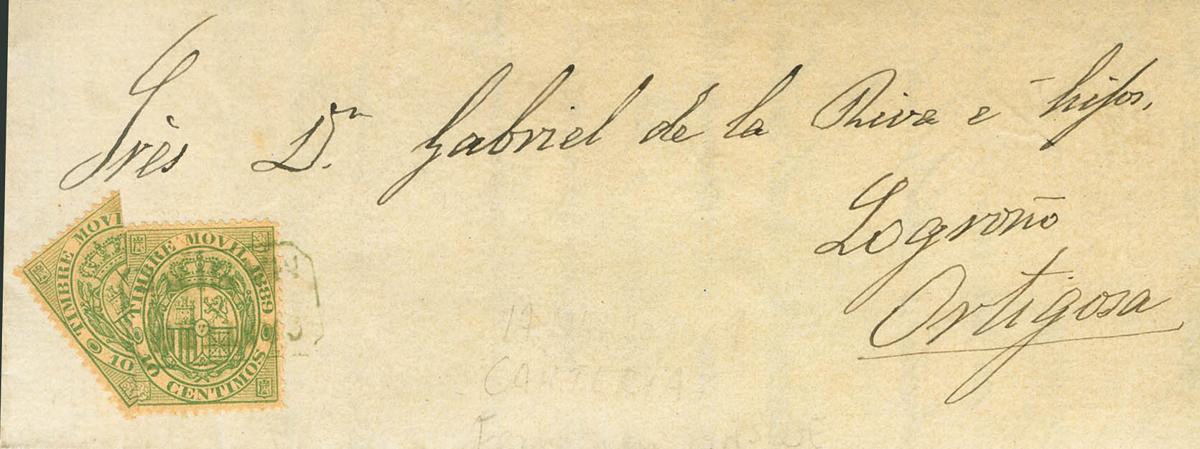 Srès Dn. Gabriel de la Riva e hijos.
Logroño
Ortigosa
TIMBRE MOVI
10
TIMBRE MOVIL 1889
10 CENTIMOS